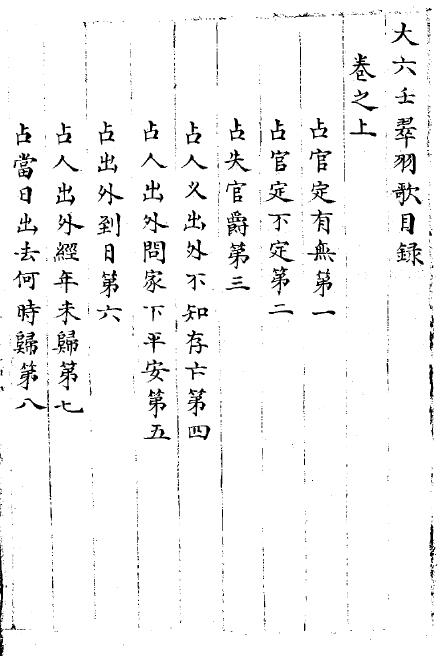 大六壬翠羽歌目録
卷之上
占官定有無第一
占官定不定第二
占失官爵第三
占人久出外不知存亡第四
占人出外問家下平安第五
占出外到日第六
占人出外經年未歸第七
占當日出去何時歸第八